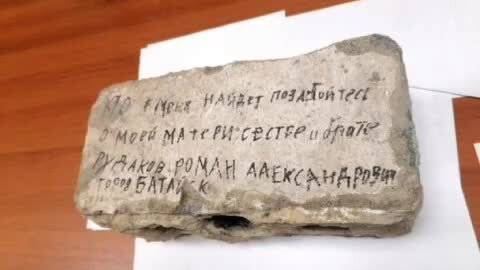 КТО МЕНЯ НАЙДЕТ ПОЗАБОЙТЕСЬ
О МОЕЙ МАТЕРИ СЕСТРЕ И БРАТЕ
РУДАКОВ РОМАН АЛЕКСАНДРОВИЧ
ГОРОД БАТАЙСК